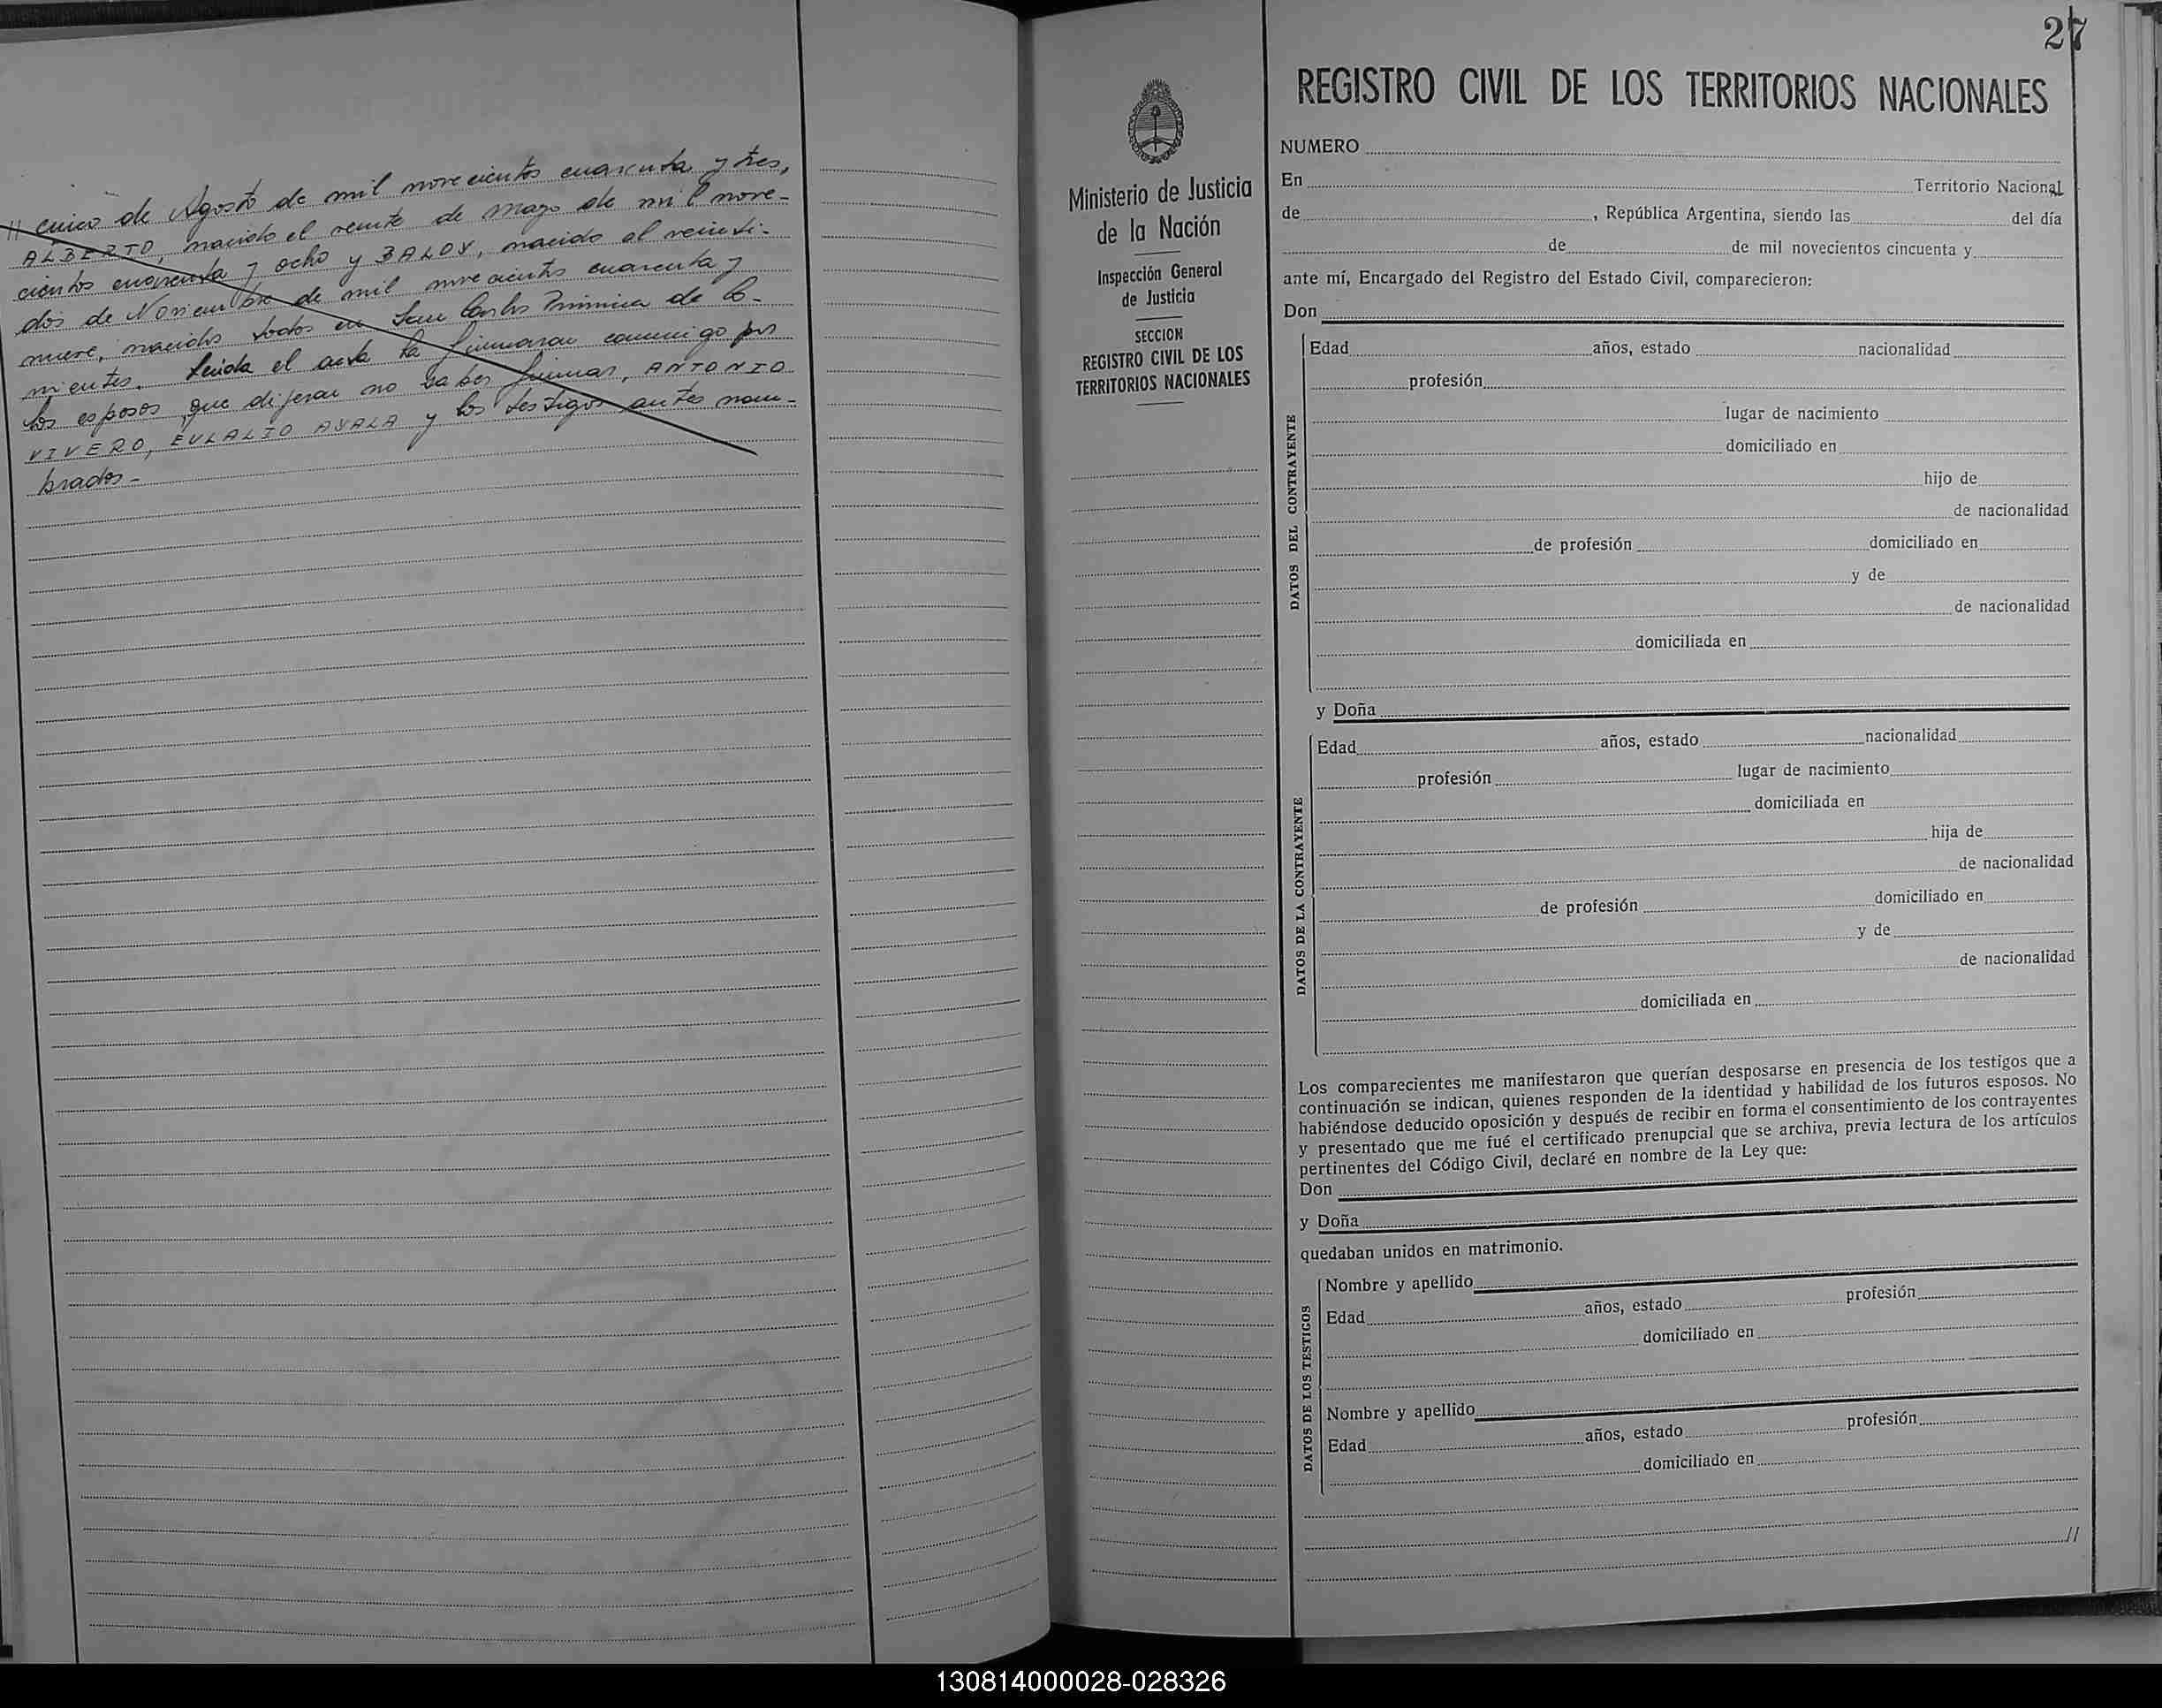 // cinco de Agosto de mil novecientos cuarenta y tres,
ALBERTO, nacido el veinte de Mayo de mil nove-
cientos cuarenta y ocho y BALOY, nacido el veinti-
dós de Noviembre de mil novecientos cuarenta y
nueve, nacidos todos en San Carlos Primicia de Co-
rrientes. Leída el acta la firmaron conmigo por
los esposos que dijeron no saber firmar, ANTONIO
VIVERO, EULALIO AYALA y los testigos antes nom-
brados-
27
Ministerio de Justicia
de la Nación
Inspección General
de Justicia
SECCION
REGISTRO CIVIL DE LOS
TERRITORIOS NACIONALES
REGISTRO CIVIL DE LOS TERRITORIOS NACIONALES
NUMERO
En Territorio Nacional
de , República Argentina, siendo las del día
de de mil novecientos cincuenta y
ante mí, Encargado del Registro del Estado Civil, comparecieron:
Don
DATOS DEL CONTRAYENTE
Edad años, estado nacionalidad
profesión
lugar de nacimiento
domiciliado en
hijo de
de nacionalidad
de profesión domiciliado en
y de
de nacionalidad
domiciliada en
y Doña
DATOS DE LA CONTRAYENTE
Edad años, estado nacionalidad
profesión lugar de nacimiento
domiciliada en
hija de
de nacionalidad
de profesión domiciliado en
y de
de nacionalidad
domiciliada en
Los comparecientes me manifestaron que querían desposarse en presencia de los testigos que a
continuación se indican, quienes responden de la identidad y habilidad de los futuros esposos. No
habiéndose deducido oposición y después de recibir en forma el consentimiento de los contrayentes
y presentado que me fué el certificado prenupcial que se archiva, previa lectura de los artículos
pertinentes del Código Civil, declaré en nombre de la Ley que:
Don
y Doña
quedaban unidos en matrimonio.
DATOS DE LOS TESTIGOS
Nombre y apellido
Edad años, estado profesión
domiciliado en
Nombre y apellido
Edad años, estado profesión
domiciliado en
//
130814000028-028326